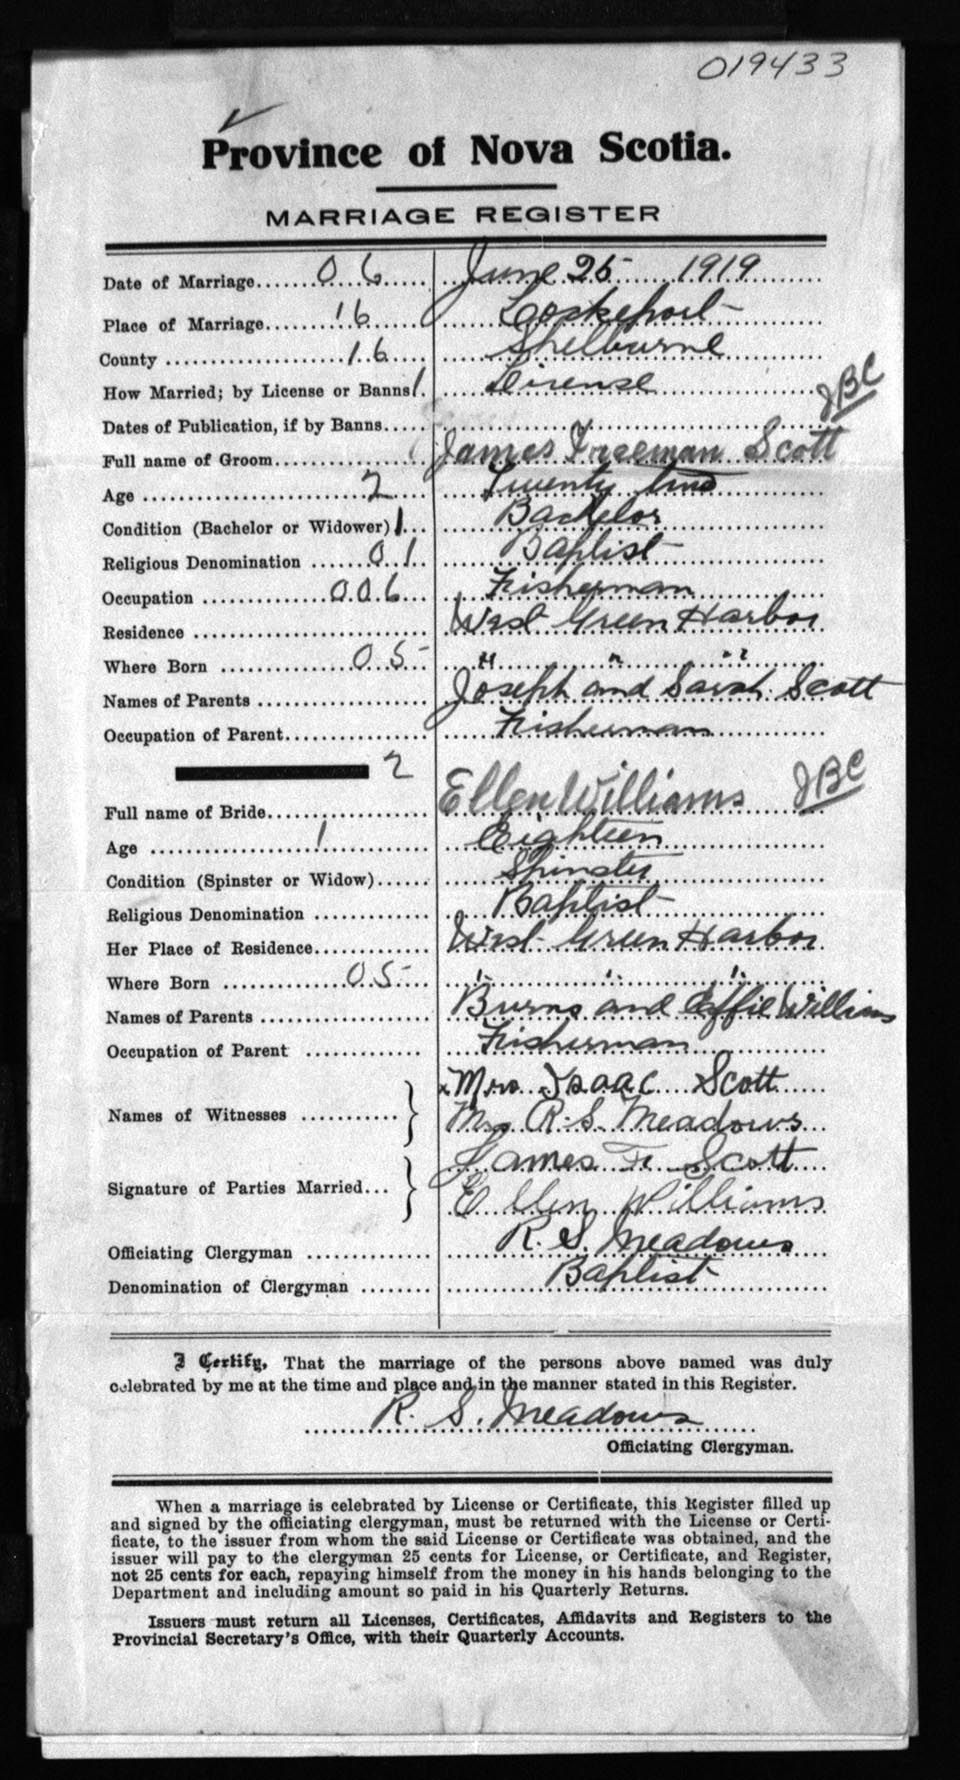 019433
Province of Nova Scotia.
MARRIAGE REGISTER
Date of Marriage 06 June 25 1919
Place of Marriage 16 Lockeport
County 16 Shelburne
How Married; by License or Banns 1 License
JBC
Dates of Publication, if by Banns
Full name of Groom James Freeman Scott
Age 2 Twenty two
Condition (Bachelor or Widower) 1 Bachelor
Religious Denomination 01 Baptist
Occupation 006 Fisherman
Residence West Green Harbor
Where Born 05 " " "
Names of Parents Joseph and Sarah Scott
Occupation of Parent Fisherman
2
Full name of Bride Ellen Williams JBC
Age 1 Eighteen
Condition (Spinster or Widow) Spinster
Religious Denomination Baptist
Her Place of Residence West Green Harbor
Where Born 05 " " "
Names of Parents Burns and Effie Williams
Occupation of Parent Fisherman
Names of Witnesses } x Mrs Isaac Scott
Mrs R. S. Meadows
Signature of Parties Married } James F. Scott
Ellen Williams
Officiating Clergyman R. S. Meadows
Denomination of Clergyman Baptist
I Certify, That the marriage of the persons above named was duly
celebrated by me at the time and place and in the manner stated in this Register.
R. S. Meadows
Officiating Clergyman.
When a marriage is celebrated by License or Certificate, this Register filled up
and signed by the officiating clergyman, must be returned with the License or Certi-
ficate, to the issuer from whom the said License or Certificate was obtained, and the
issuer will pay to the clergyman 25 cents for License, or Certificate, and Register,
not 25 cents for each, repaying himself from the money in his hands belonging to the
Department and including amount so paid in his Quarterly Returns.
Issuers must return all Licenses, Certificates, Affidavits and Registers to the
Provincial Secretary's Office, with their Quarterly Accounts.